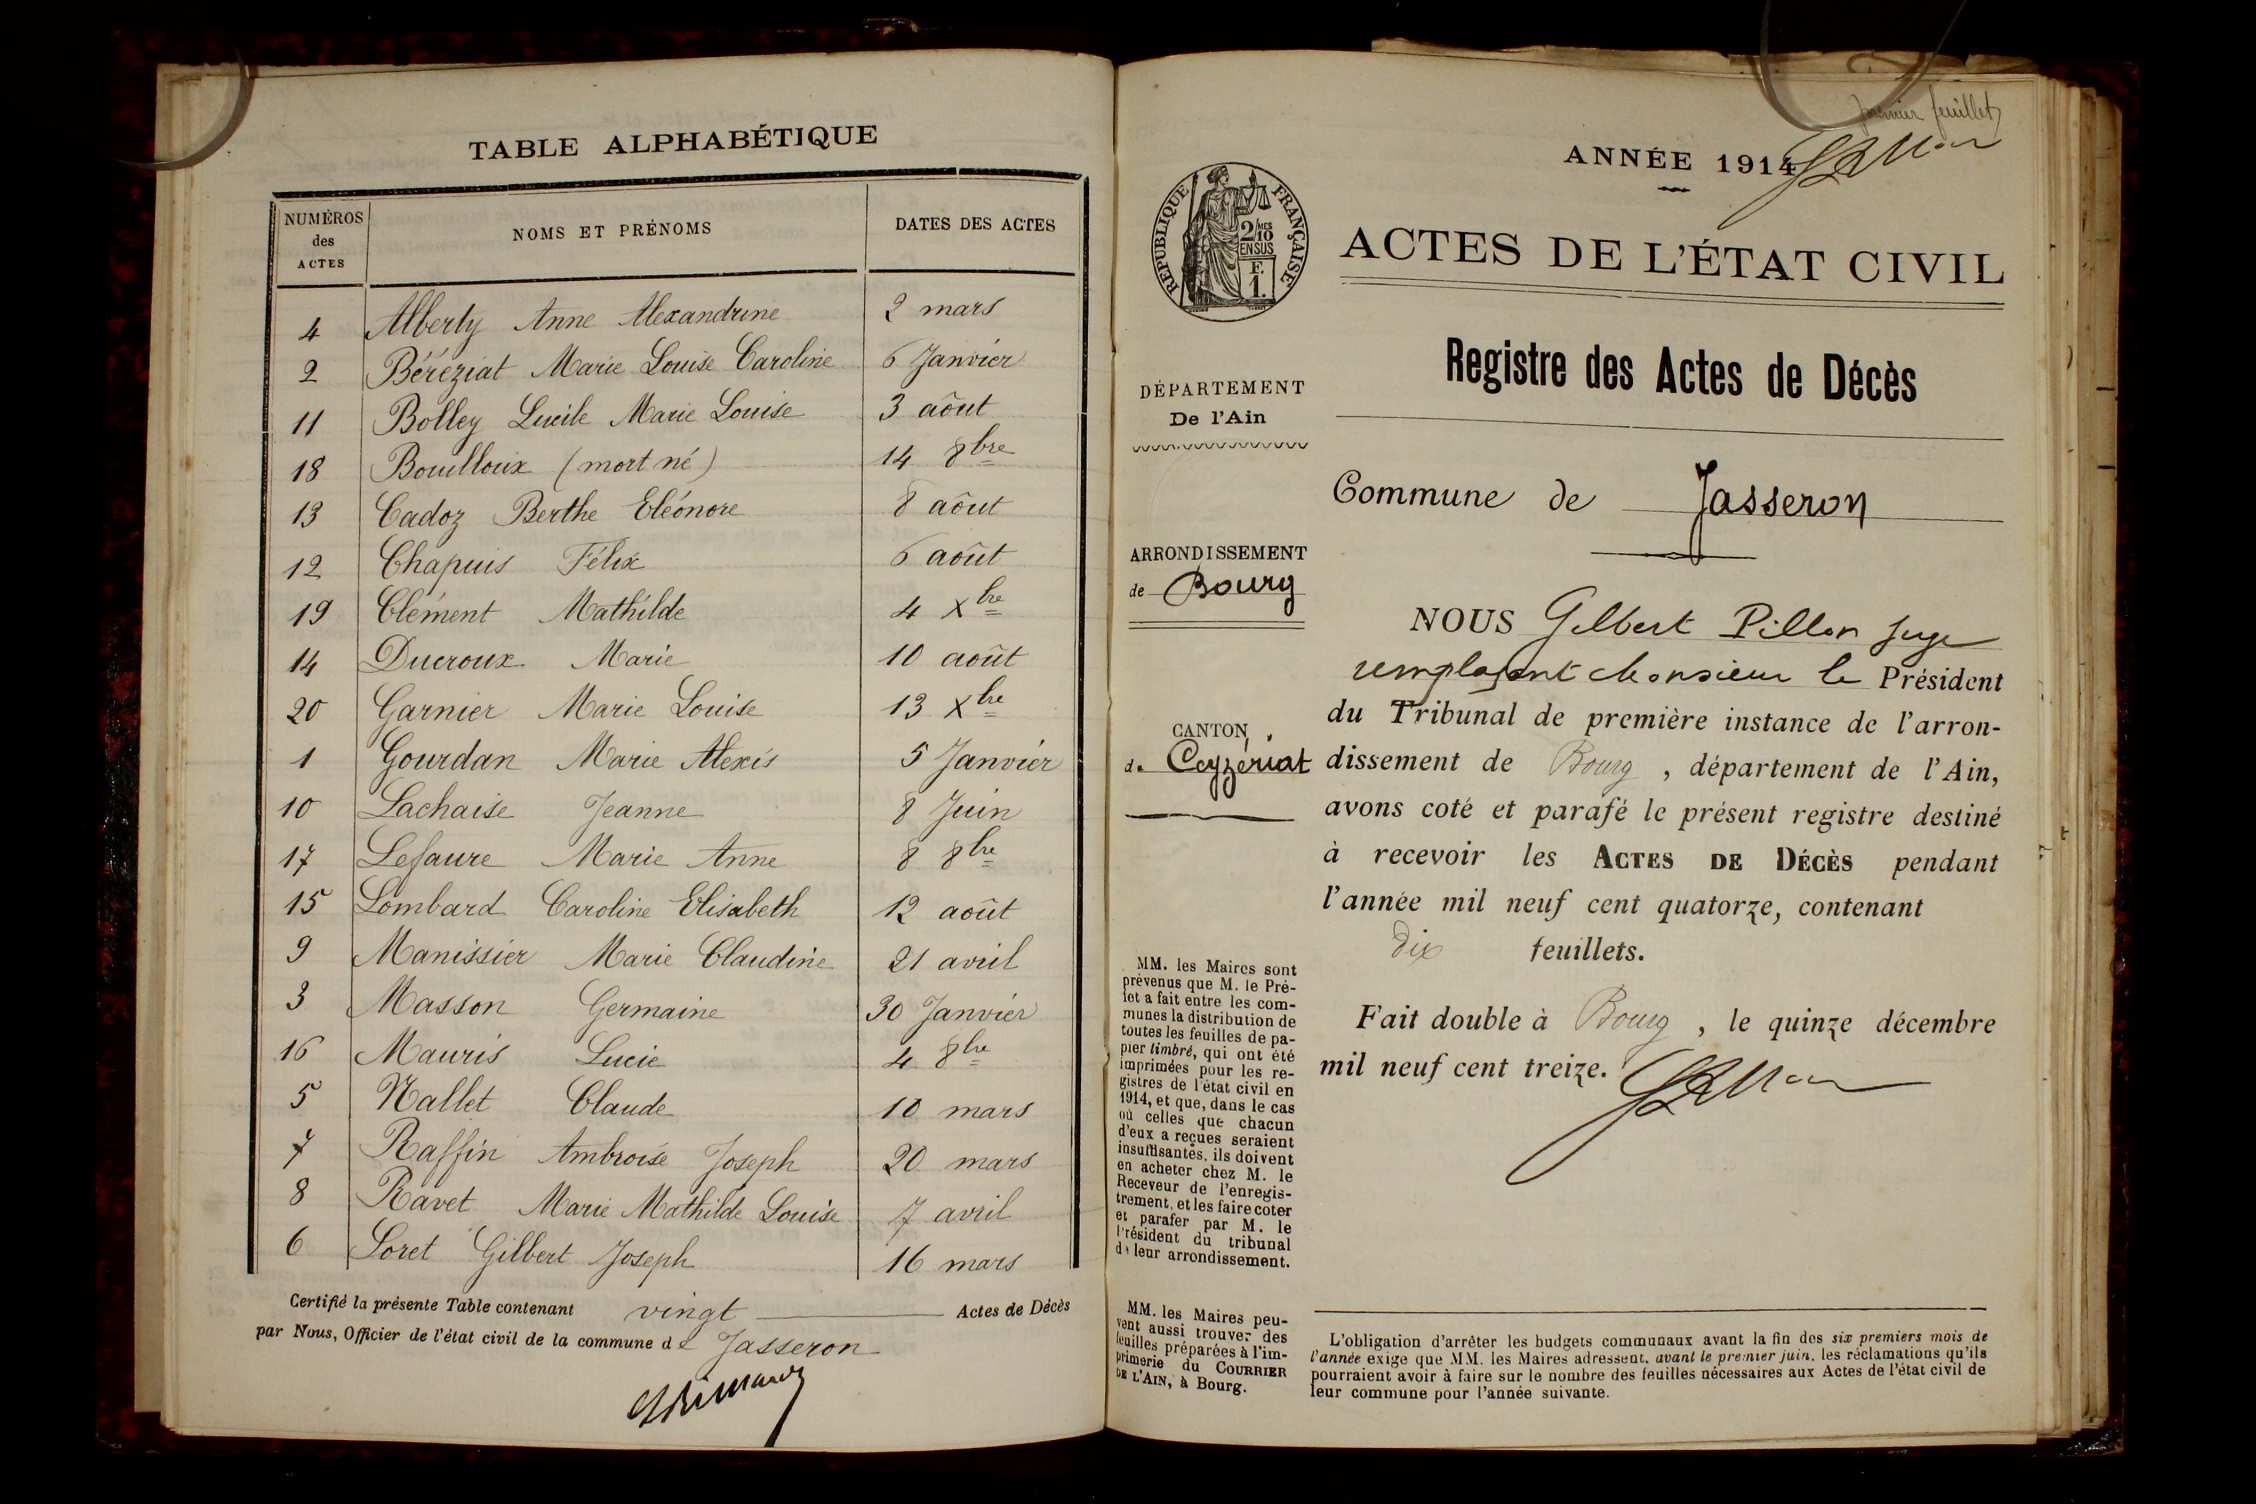 TABLE ALPHABÉTIQUE
NUMÉROS des ACTES | NOMS ET PRÉNOMS | DATES DES ACTES
4 Alberty Anne Alexandrine 2 mars
2 Béréziat Marie Louise Caroline 6 Janvier
11 Bolley Lucile Marie Louise 3 aôut
18 Bouilloux (mort né) 14 8bre
13 Cadoz Berthe Eléonore 8 aôut
12 Chapuis Félix 6 août
19 Clément Mathilde 4 Xbre
14 Ducroux Marie 10 août
20 Garnier Marie Louise 13 Xbre
1 Gourdan Marie Alexis 5 Janvier
10 Lachaise Jeanne 8 Juin
17 Lefaure Marie Anne 8 8bre
15 Lombard Caroline Elisabeth 12 août
9 Manissier Marie Claudine 21 avril
3 Masson Germaine 30 Janvier
16 Mauris Lucie 4 8bre
5 Nallet Claude 10 mars
7 Raffin Ambroise Joseph 20 mars
8 Ravet Marie Mathilde Louise 7 avril
6 Soret Gilbert Joseph 16 mars
Certifié la présente Table contenant vingt Actes de Décès
par Nous, Officier de l'état civil de la commune de Jasseron
premier feuillet
ANNÉE 1914
RÉPUBLIQUE FRANÇAISE
2/10 MES
EN SUS
F.
1.
ACTES DE L'ÉTAT CIVIL
Registre des Actes de Décès
DÉPARTEMENT
De l'Ain
Commune de Jasseron
ARRONDISSEMENT
de Bourg
CANTON
de Ceyzériat
NOUS Gilbert Pillon juge
remplaçant Monsieur le Président
du Tribunal de première instance de l'arron-
dissement de Bourg, département de l'Ain,
avons coté et parafé le présent registre destiné
à recevoir les ACTES DE DÉCÈS pendant
l'année mil neuf cent quatorze, contenant
dix feuillets.
Fait double à Bourg, le quinze décembre
mil neuf cent treize.
MM. les Maires sont
prévenus que M. le Pré-
fet a fait entre les com-
munes la distribution de
toutes les feuilles de pa-
pier timbré, qui ont été
imprimées pour les re-
gistres de l'état civil en
1914, et que, dans le cas
où celles que chacun
d'eux a reçues seraient
insuffisantes, ils doivent
en acheter chez M. le
Receveur de l'enregis-
trement, et les faire coter
et parafer par M. le
Président du tribunal
de leur arrondissement.
MM. les Maires peu-
vent aussi trouver des
feuilles préparées à l'im-
primerie du COURRIER
DE L'AIN, à Bourg.
L'obligation d'arrêter les budgets communaux avant la fin des six premiers mois de
l'année exige que MM. les Maires adressent, avant le premier juin, les réclamations qu'ils
pourraient avoir à faire sur le nombre des feuilles nécessaires aux Actes de l'état civil de
leur commune pour l'année suivante.